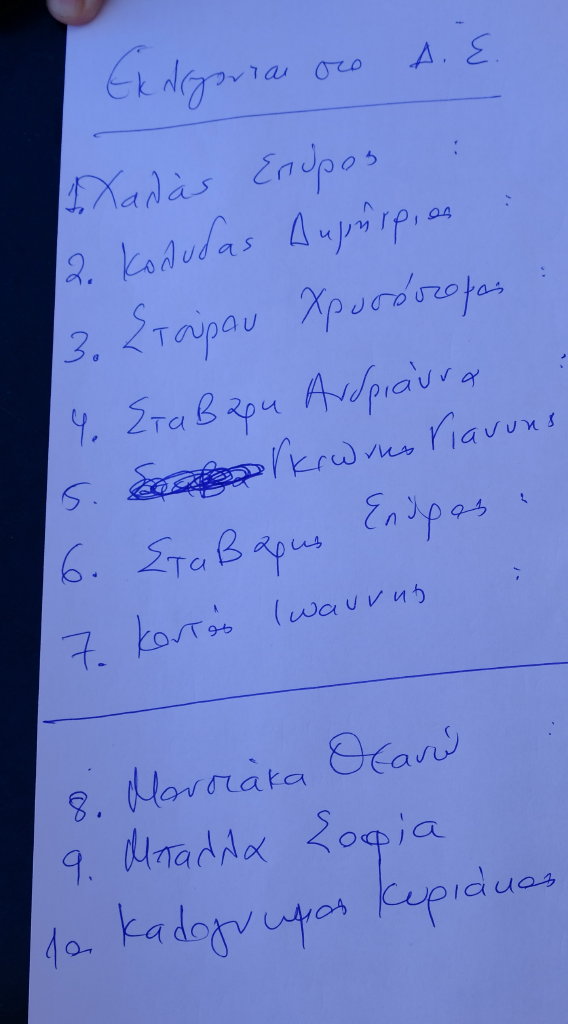 Εκλέγονται στο Δ.Σ.
1. Χαλάς Σπύρος :
2. Κολυδας Δημήτριος :
3. Σταύρου Χρυσόστομος :
4. ΣταΒάρη Ανδριάννα :
5. Γκιώνης Γιαννης
6. ΣταΒάρης Σπύρος :
7. Κοντός Ιωαννης :
8. Μουστάκα Θεανώ :
9. Μπαλλα Σοφία
10 Καλογνωμος Κυριάκος